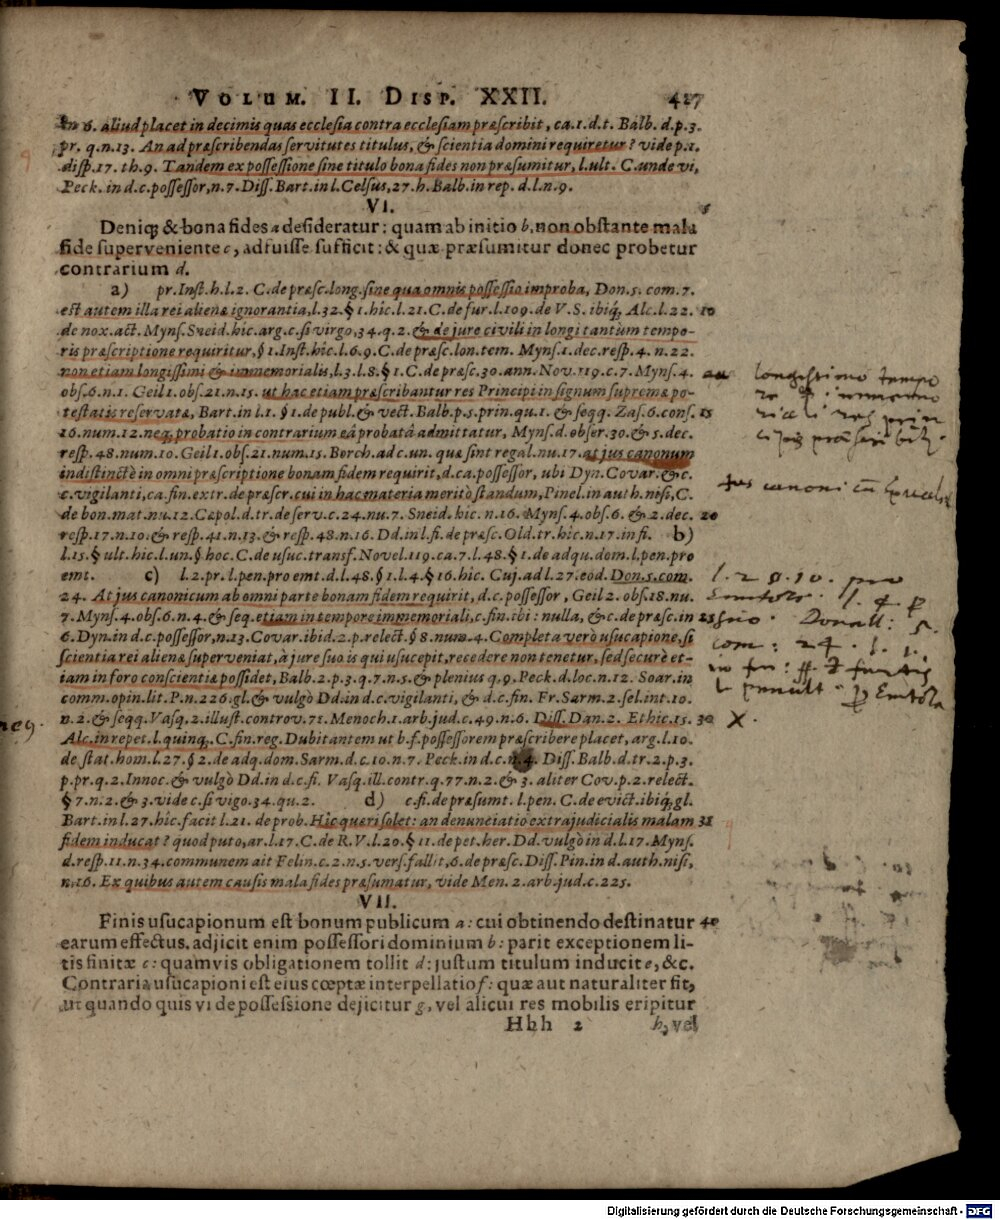 VOLUM. II. DISP. XXII. 427
in 6. aliud placet in decimis quas ecclesia contra ecclesiam præscribit, ca.1.d.t. Balb. d.p.3.
pr. q.n.13. An ad præscribendas servitutes titulus, & scientia domini requiretur? vide p.1.
disp.17. th.9. Tandem ex possessione sine titulo bona fides non præsumitur, l.ult. C.unde vi,
Peck. in d.c.possessor,n.7.Diss.Bart.in l.Celsus,27.h.Balb.in rep. d.l.n.9.
VI.
Deniq; & bona fides a desideratur: quam ab initio b, non obstante mala
fide superveniente c, adfuisse sufficit: & quæ præsumitur donec probetur
contrarium d.
a) pr.Inst.h.l.2. C.de præsc.long.sine qua omnis possessio improba, Don.5. com.7.
est autem illa rei alienæ ignorantia, l.32.§ 1.hic.l.21.C.de fur.l.109.de V.S. ibiq; Alc.l.22. 10
de nox.act. Myns.Sneid.hic.arg.c.si virgo,34.q.2.& de jure civili in longi tantùm tempo-
ris præscriptione requiritur,§ 1.Inst.hîc.l.6.9.C.de præsc.lon.tem. Myns.1.dec.resp.4.n.22.
non etiam longissimi & immemorialis, l.3.l.8.§ 1.C.de præsc.30.ann.Nov.119.c.7.Myns.4.
obs.6.n.1. Geil 1.obs.21.n.15. ut hac etiam præscribantur res Principi in signum supremæ po-
testatis reservatæ, Bart.in l.1. § 1.de publ.& vect. Balb.p.5.prin.qu.1. & seqq. Zas.6.cons. 15
16.num.12.neq; probatio in contrarium eâ probatâ admittatur, Myns.d.obser.30.& 5.dec.
resp.48.num.10.Geil 1.obs.21.num.15.Borch.ad c.un. quæ sint regal.nu.17.at jus canonum
indistinctè in omni præscriptione bonam fidem requirit, d.ca.possessor, ubi Dyn.Covar.& c.
c.vigilanti,ca.fin.extr.de præscr.cui in hac materia meritò standum, Pinel.in auth.nisi, C.
de bon.mat.nu.12. Cæpol.d.tr.de serv.c.24.nu.7. Sneid. hic. n.16. Myns.4.obs.6. & 2.dec. 20
resp.17.n.10.& resp.41.n.13.& resp.48.n.16. Dd.in l.fi.de præsc.Old.tr.hic n.17.in fi. b)
l.15.§ ult.hic.l.un.§ hoc. C.de usuc.transf. Novel.119.ca.7.l.48.§ 1.de adqu.dom.l.pen.pro
emt. c) l.2.pr.l.pen.pro emt.d.l.48.§ 1.l.4.§ 16.hic. Cuj.ad l.27.eod.Don.5.com.
24. At jus canonicum ab omni parte bonam fidem requirit, d.c.possessor, Geil 2. obs.18.nu.
7. Myns.4.obs.6.n.4.& seq.etiam in tempore immemoriali, c.fin.ibi: nulla, & c.de præsc.in 25
6.Dyn.in d.c.possessor,n.13.Covar.ibid.2.p.relect.§ 8.num.4.Completa verò usucapione, si
scientia rei alienæ superveniat, à jure suo is qui usucepit, recedere non tenetur, sed securè et-
iam in foro conscientiæ possidet, Balb.2.p.3.q.7.n.5.& plenius q.9.Peck.d.loc.n.12. Soar.in
comm.opin.lit.P.n.226.gl.& vulgò Dd.in d.c.vigilanti, & d.c.fin. Fr.Sarm.2.sel.int.10.
n.2.& seqq. Vasq.2.illust.controv.71. Menoch.1.arb.jud.c.49.n.6. Diss.Dan.2. Ethic.15. 30
Alc.in repet.l.quinq; C.fin.reg.Dubitantem ut b.f.possessorem præscribere placet, arg.l.10.
de stat.hom.l.27.§ 2.de adq.dom.Sarm.d.c.10.n.7. Peck.in d.c.n.4. Diss.Balb.d.tr.2.p.3.
p.pr.q.2.Innoc.& vulgò Dd.in d.c.fi. Vasq.ill.contr.q.77.n.2.& 3.aliter Cov.p.2.relect.
§ 7.n.2.& 3.vide c.si vigo.34.qu.2. d) c.fi.de præsumt. l.pen. C.de evict.ibiq; gl.
Bart.in l.27.hic.facit l.21. de prob.Hic quæri solet: an denunciatio extrajudicialis malam 35
fidem inducat? quod puto, ar.l.17.C.de R.V.l.20.§ 11.de pet.her.Dd.vulgò in d.l.17.Myns.
d.resp.11.n.34.communem ait Felin.c.2.n.5.vers.fallit,6.de præsc.Diss.Pin.in d.auth.nisi,
n.16. Ex quibus autem causis mala fides præsumatur, vide Men.2.arb.jud.c.225.
VII.
Finis usucapionum est bonum publicum a: cui obtinendo destinatur 40
earum effectus, adjicit enim possessori dominium b: parit exceptionem li-
tis finitæ c: quamvis obligationem tollit d: justum titulum inducit e, &c.
Contraria usucapioni est eius cœptæ interpellatio f: quæ aut naturaliter fit,
ut quando quis vi de possessione dejicitur g, vel alicui res mobilis eripitur
Hhh 2 h, vel
longissimo tempo
jus canoni
l. 2 §. 10. pro
Donell: 5.
com: 24. l. 1.
l. penult
X.
neg.
Digitalisierung gefördert durch die Deutsche Forschungsgemeinschaft - DFG